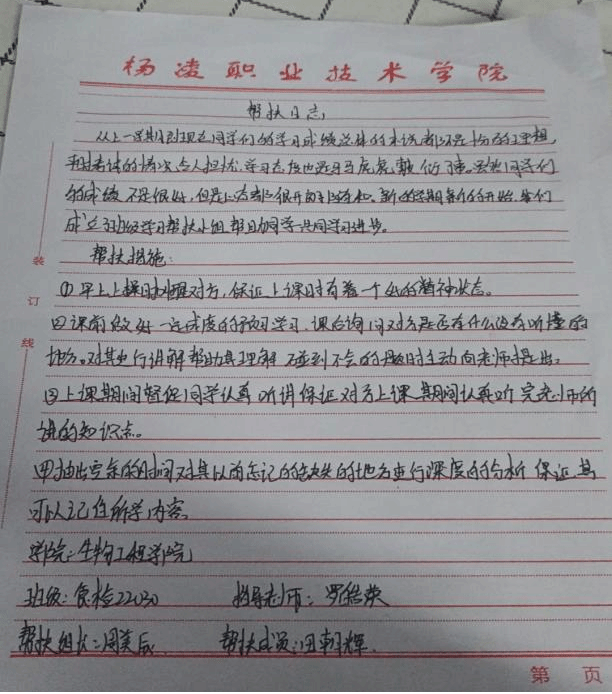 杨凌职业技术学院
帮扶日志
从上一学期到现在同学们的学习成绩总体的来说都不是十分的理想,
平时考试的情况令人担忧,学习态度也是马马虎虎敷衍了事。虽然同学们
的成绩不是很好,但是上大都很开的。新的学期新的开始,我们
成立班级学习帮扶小组帮助同学共同学习进步。
帮扶措施:
①早上上课时叫醒对方,保证上课时有着一个好的精神状态。
②课前做好一定难度的预习学习,课后询问对方是否有什么没有听懂的
地方。对其进行讲解帮助其理解 碰到不会的题时主动向老师提出。
③上课期间督促同学认真听讲保证对方上课期间认真听完老师所
讲的知识点。
④抽出空余的时间对其以前忘记的缺失的地方进行深度的分析 保证其
可以记住所学内容。
学院:生物工程学院
班级:食检22030 指导老师:罗
帮扶组长:周美辰 帮扶成员:田朝辉
装
订
线
第 页